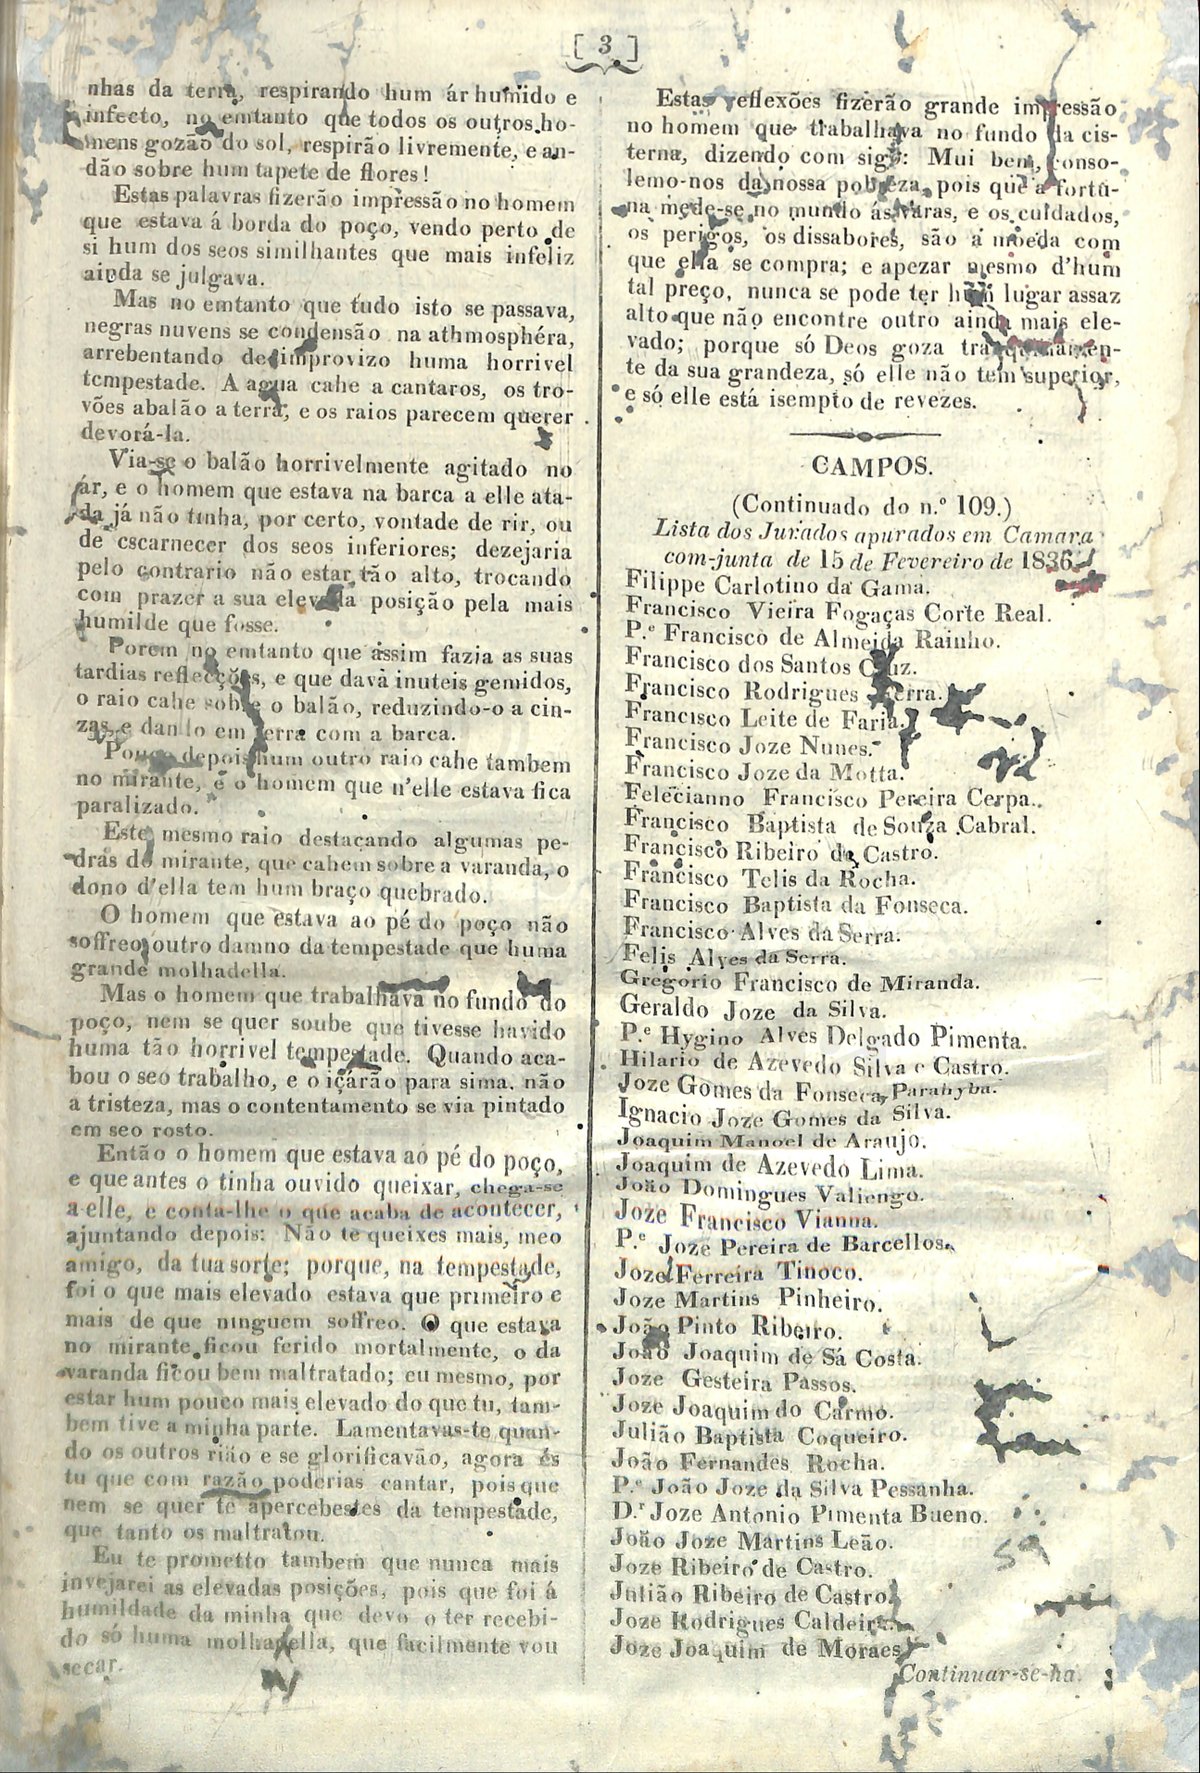 [ 3 ]
nhas da terra, respirando hum ár humido e
infecto, no emtanto que todos os outros ho-
mens gozão do sol, respirão livremente, e an-
dão sobre hum tapete de flores!
Estas palavras fizerão impressão no homem
que estava á borda do poço, vendo perto de
si hum dos seos similhantes que mais infeliz
ainda se julgava.
Mas no emtanto que tudo isto se passava,
negras nuvens se condensão na athmosphéra,
arrebentando de improvizo huma horrivel
tempestade. A agua cahe a cantaros, os tro-
vões abalão a terra, e os raios parecem querer
devorá-la.
Via-se o balão horrivelmente agitado no
ár, e o homem que estava na barca a elle ata-
da já não tinha, por certo, vontade de rir, ou
de escarnecer dos seos inferiores; dezejaria
pelo contrario não estar tão alto, trocando
com prazer a sua elevada posição pela mais
humilde que fosse.
Porem no emtanto que assim fazia as suas
tardias reflecções, e que dava inuteis gemidos,
o raio cahe sobre o balão, reduzindo-o a cin-
zas, e dando em terra com a barca.
Pouco depois hum outro raio cahe tambem
no mirante, e o homem que n'elle estava fica
paralizado.
Este mesmo raio destacando algumas pe-
dras do mirante, que cahem sobre a varanda, o
dono d'ella tem hum braço quebrado.
O homem que estava ao pé do poço não
soffreo outro damno da tempestade que huma
grande molhadella.
Mas o homem que trabalhava no fundo do
poço, nem se quer soube que tivesse havido
huma tão horrivel tempestade. Quando aca-
bou o seo trabalho, e o içarão para sima, não
a tristeza, mas o contentamento se via pintado
em seo rosto.
Então o homem que estava ao pé do poço,
e que antes o tinha ouvido queixar, chega-se
a elle, e conta-lhe o que acaba de acontecer,
ajuntando depois: Não te queixes mais, meo
amigo, da tua sorte; porque, na tempestade,
foi o que mais elevado estava que primeiro e
mais de que ninguem soffreo. O que estava
no mirante ficou ferido mortalmente, o da
varanda ficou bem maltratado; eu mesmo, por
estar hum pouco mais elevado do que tu, tam-
bem tive a minha parte. Lamentavas-te quan-
do os outros rião e se glorificavão, agora és
tu que com razão poderias cantar, pois que
nem se quer te apercebestes da tempestade,
que tanto os maltratou.
Eu te prometto tambem que nunca mais
invejarei as elevadas posições, pois que foi á
humildade da minha que devo o ter recebi-
do só huma molhadella, que facilmente vou
secar.
Estas reflexões fizerão grande impressão
no homem que trabalhava no fundo da cis-
terna, dizendo com sigo: Mui bem, conso-
lemo-nos da nossa pobreza, pois que a fortu-
na mede-se no mundo ás varas, e os cuidados,
os perigos, os dissabores, são a moeda com
que ella se compra; e apezar mesmo d'hum
tal preço, nunca se pode ter hum lugar assaz
alto que não encontre outro ainda mais ele-
vado; porque só Deos goza tranquillamen-
te da sua grandeza, só elle não tem superior,
e só elle está isempto de revezes.
CAMPOS.
(Continuado do n.º 109.)
Lista dos Jurados apurados em Camara
com-junta de 15 de Fevereiro de 1836.
Filippe Carlotino da Gama.
Francisco Vieira Fogaças Corte Real.
P.e Francisco de Almeida Rainho.
Francisco dos Santos Cruz.
Francisco Rodrigues Serra.
Francisco Leite de Faria.
Francisco Joze Nunes.
Francisco Joze da Motta.
Felecianno Francisco Pereira Cerpa.
Francisco Baptista de Souza Cabral.
Francisco Ribeiro de Castro.
Francisco Telis da Rocha.
Francisco Baptista da Fonseca.
Francisco Alves da Serra.
Felis Alves da Serra.
Gregorio Francisco de Miranda.
Geraldo Joze da Silva.
P.e Hygino Alves Delgado Pimenta.
Hilario de Azevedo Silva e Castro.
Joze Gomes da Fonseca, Parahyba.
Ignacio Joze Gomes da Silva.
Joaquim Manoel de Araujo.
Joaquim de Azevedo Lima.
João Domingues Valiengo.
Joze Francisco Vianna.
P.e Joze Pereira de Barcellos.
Joze Ferreira Tinoco.
Joze Martins Pinheiro.
João Pinto Ribeiro.
João Joaquim de Sá Costa.
Joze Gesteira Passos.
Joze Joaquim do Carmo.
Julião Baptista Coqueiro.
João Fernandes Rocha.
P.e João Joze da Silva Pessanha.
D.r Joze Antonio Pimenta Bueno.
João Joze Martins Leão.
Joze Ribeiro de Castro.
Julião Ribeiro de Castro.
Joze Rodrigues Caldeira.
Joze Joaquim de Moraes
Continuar-se-ha.